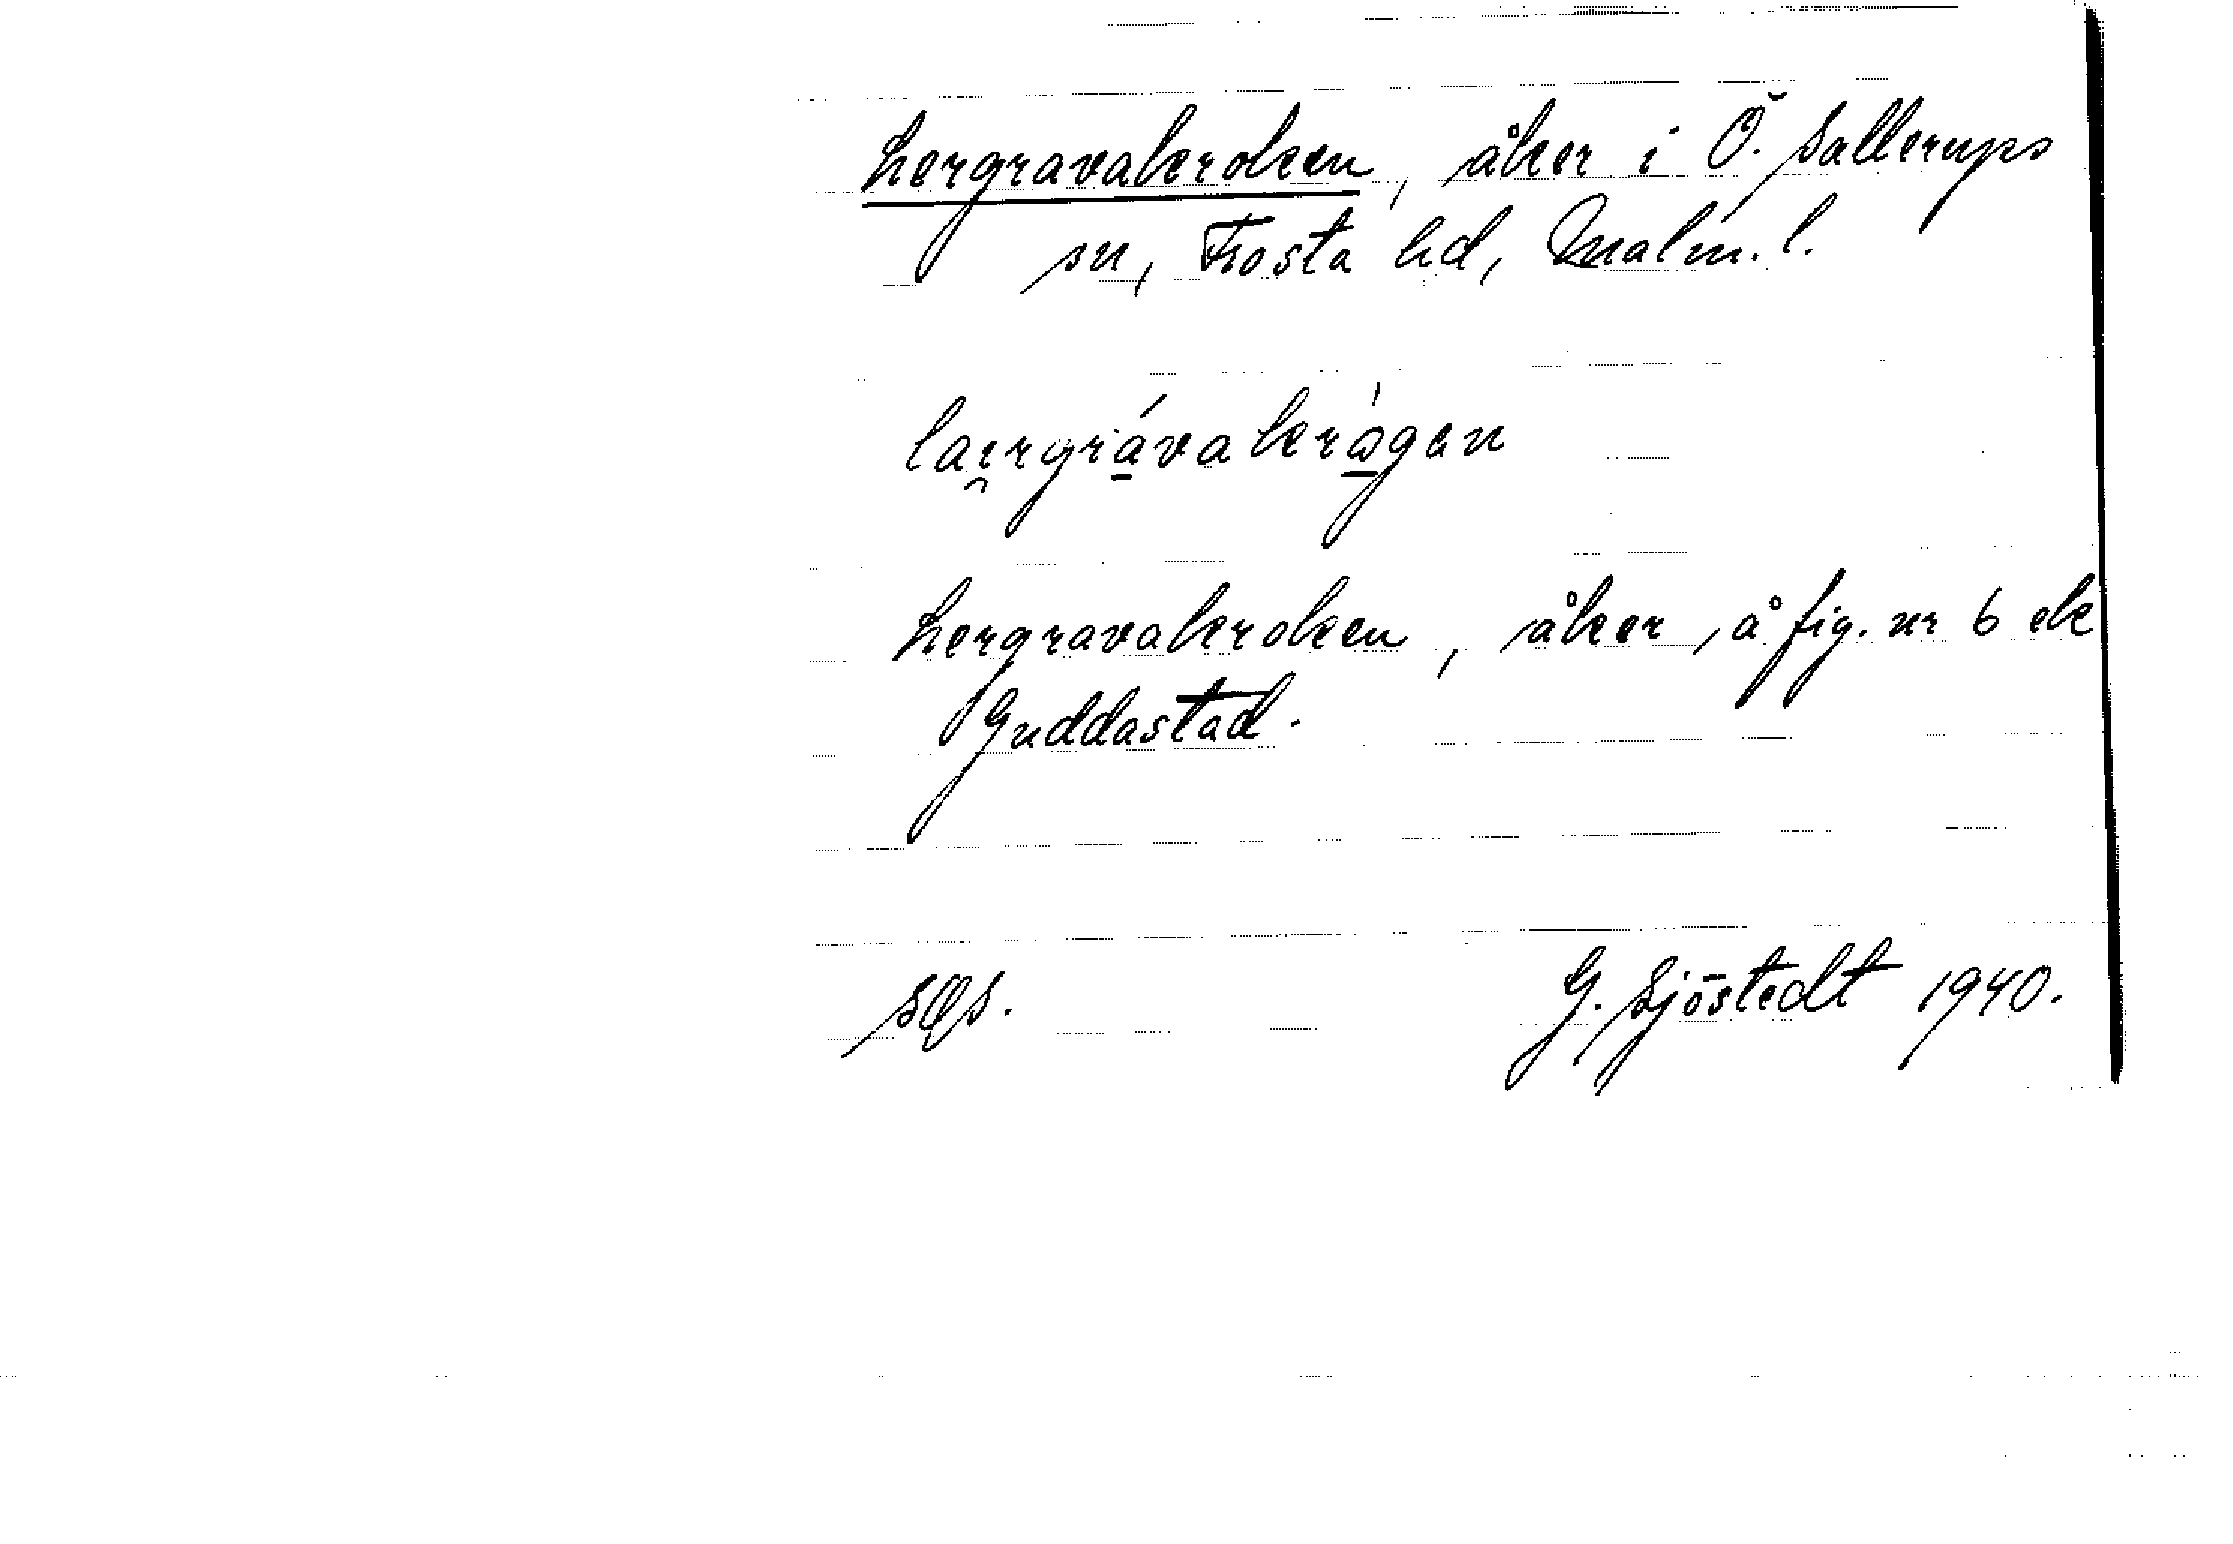 Lergravakroken, åker i Ö. Sallerups
sn, Frosta hd, Malm. l.
laergrávakrågen
Lergravakroken, åker, å fig. nr 6 ek
Guddastad.
G. Sjöstedt 1940.